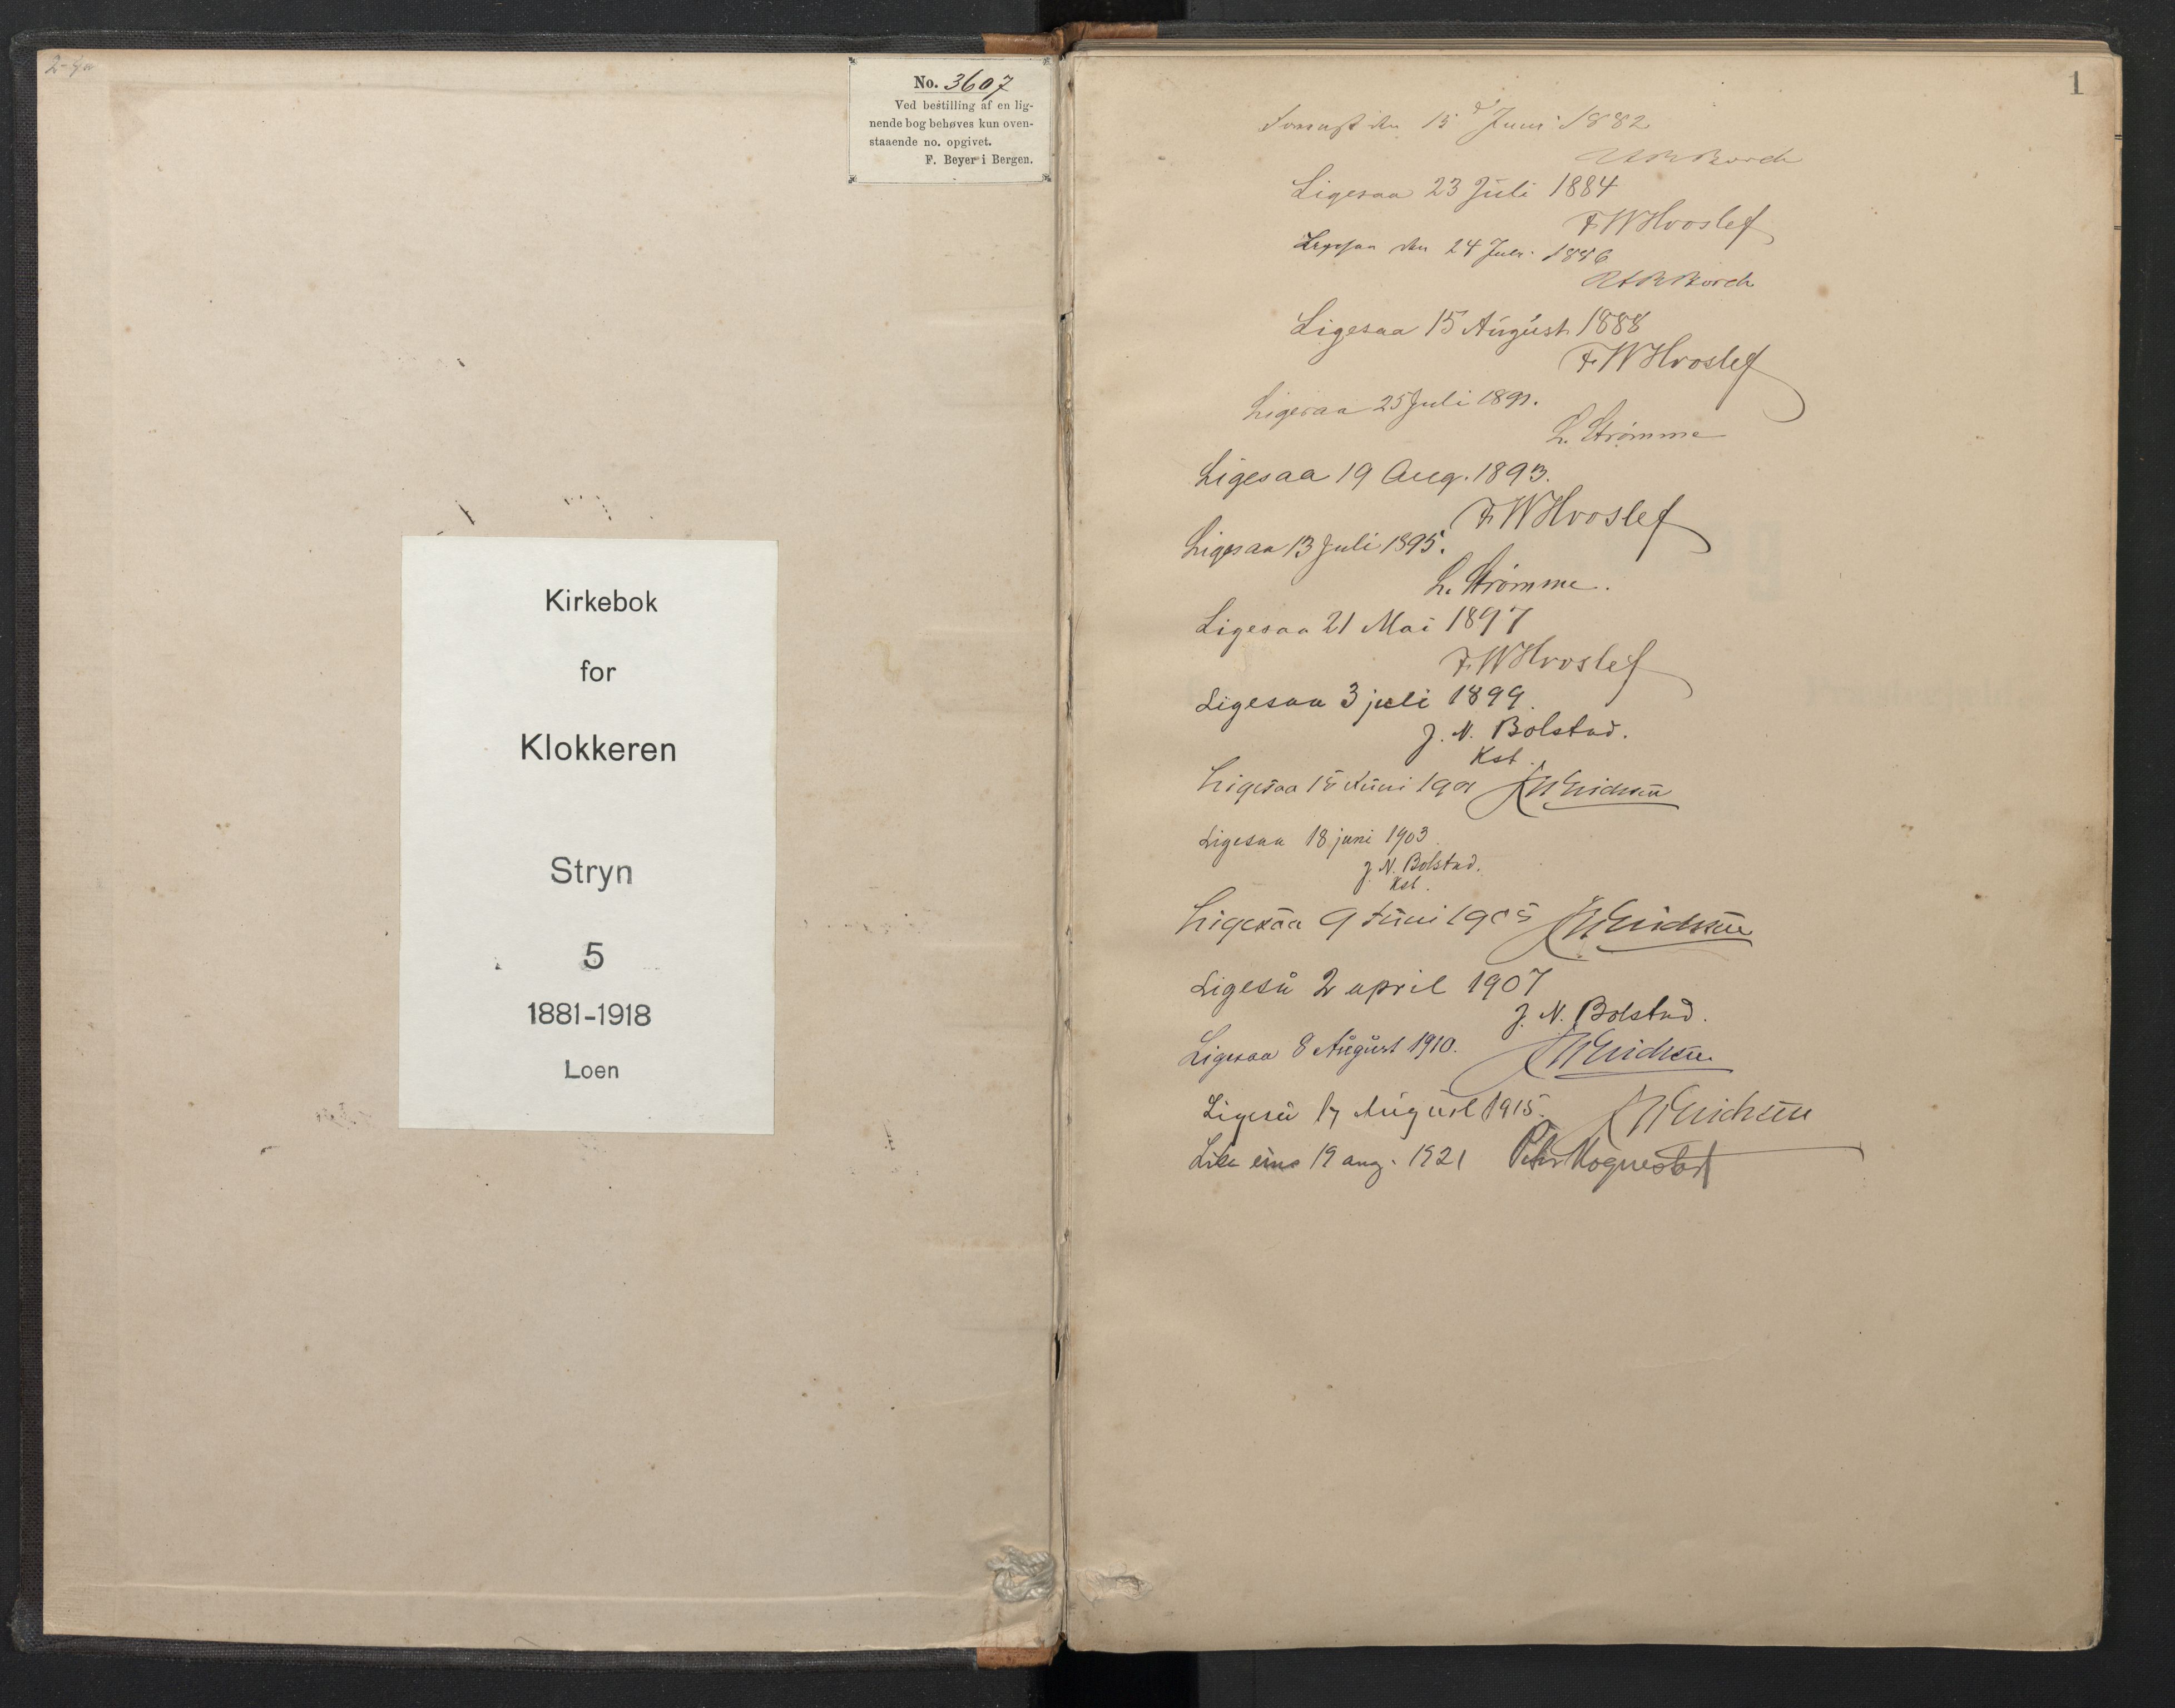 No. 3607
Ved bestilling af en lig-
nende bog behøves kun oven-
staaende no. opgivet.
F. Beyer i Bergen.
Kirkebok
for
Klokkeren
Stryn
5
1881-1918
Loen
1
den 15 Juni 1882
Ligesaa 23 Juli 1884
F W Hvoslef
Ligesaa den 24 Juli 1886
Ligesaa 15 August 1888
F. W Hvoslef
Ligesaa 25 Juli 1891.
L. Strømme
Ligesaa 19 Aug. 1893.
F. W Hvoslef
Ligesaa 13 Juli 1895.
L. Strømme.
Ligesaa 21 Mai 1897
F. W Hvoslef
Ligesaa 3 juli 1899.
J. N. Bolstad.
Kst.
Ligesaa 15 Juni 1901
Ligesaa 18 juni 1903.
J. N. Bolstad.
Kst.
Ligesaa 9 Juni 1905
Ligeså 2 april 1907
J. N. Bolstad.
Ligesaa 8 August 1910.
Ligeså 17 August 1915.
Like eins 19 aug. 1921